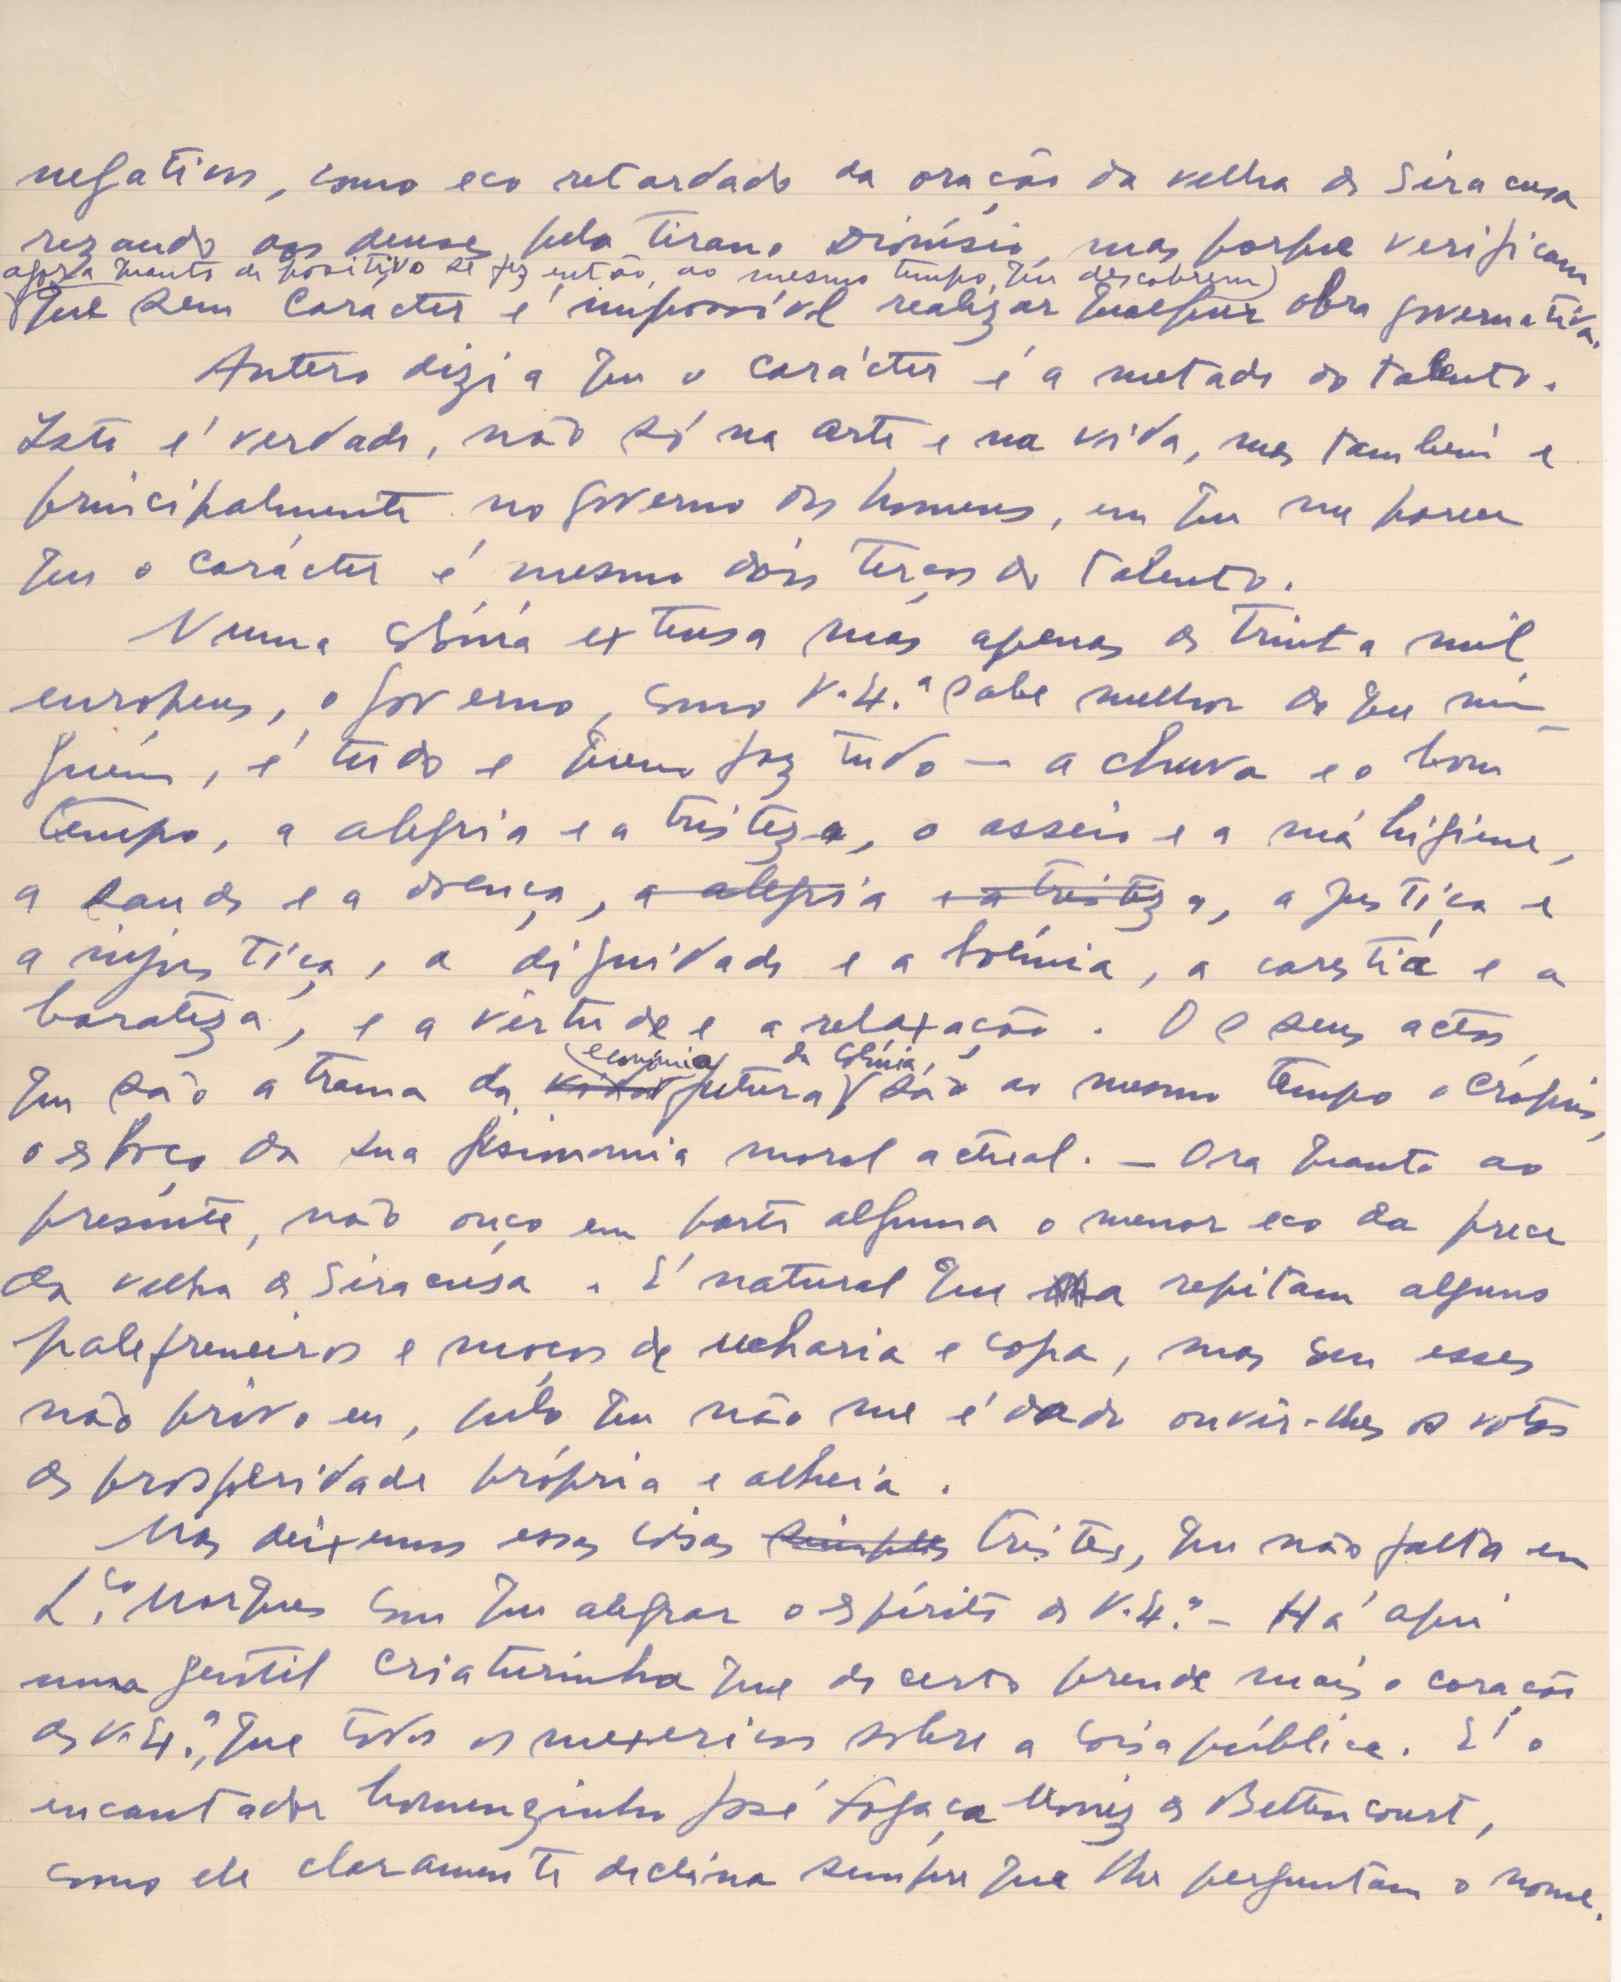 negativos, como eco retardado da oração da velha de Siracusa
rezando aos deuses pelo tirano Dionísio, mas porque verificam
agora quanto de positivo se fez então, ao mesmo tempo que descobrem
que sem carácter é impossível realizar qualquer obra governativa.
Antero dizia que o carácter é a metade do talento.
Isto é verdade, não só na arte e na vida, mas também e
principalmente no governo dos homens, em que me parece
que o carácter é mesmo dois terços do talento.
Numa colónia extensa mas apenas de trinta mil
europeus, o governo, como V. Ex.ª sabe melhor do que nin-
guém, é tudo e quem faz tudo — a chuva e o bom
tempo, a alegria e a tristeza, o asseio e a má higiene,
a saude e a doença, a alegria e a tristeza, a justiça e
a injustiça, a dignidade e a boémia, a carestia e a
barateza, e a virtude e a relaxação. Os seus actos,
economia da colónia,
que são a trama da vida futura são ao mesmo tempo o cróquis,
o esboço da sua fisionomia moral actual. — Ora quanto ao
presente, não ouço em parte alguma o menor eco da prece
da velha de Siracusa. É natural que a repitam alguns
palefreneiros e moços de ucharia e copa, mas com esses
não privo eu, pelo que não me é dado ouvir-lhes os votos
de prosperidade própria e alheia.
Mas deixemos essas coisas simples tristes, que não falta em
L.ço Marques com que alegrar o espírito de V. Ex.ª — Há aqui
uma gentil criaturinha que de certo prende mais o coração
de V. Ex.ª, que todos os mexericos sobre a coisa pública. É o
encantador homenzinho José Fogaça Moniz de Bettencourt,
como ele claramente declina sempre que lhe perguntam o nome.